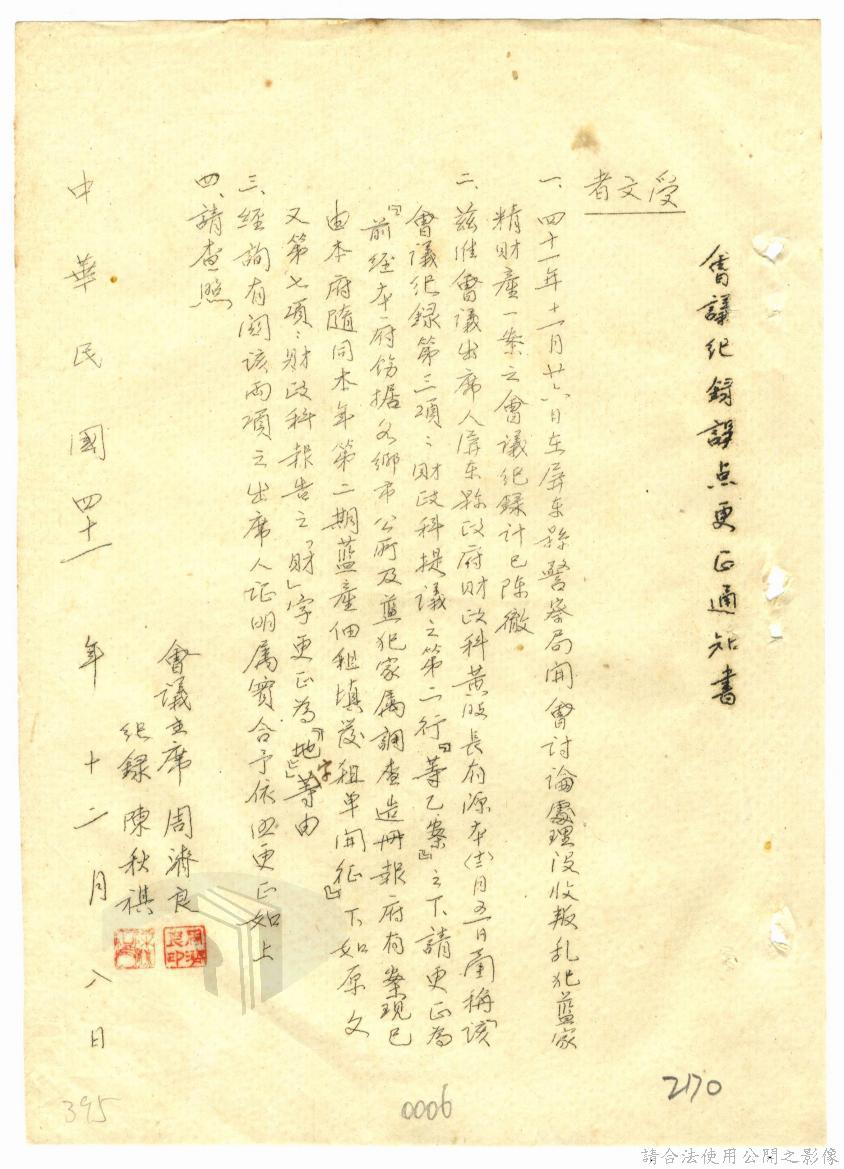 會議紀錄誤点更正通知書
受文者
一、四十一年十一月廿六日在屏东縣警察局開會討論處理沒收叛乱犯藍家
精財產一案之會議紀錄計已陳徹
二、茲准會議出席人屏东縣政府財政科黃股長有源本(十二)月五日函稱「該
會議紀錄第三項：財政科提議之第二行『等乙案』之下請更正為
『前經本府飭据各鄉市公所及藍犯家属調查造冊報府有案現已
由本府隨同本年第二期藍產佃租填發租单開征』下如原文
又第七項：財政科報告之「財」字更正為『地』字」等由
三、經詢有関該兩項之出席人証明属實合予依照更正如上
四、請查照
會議主席 周濟良
紀錄 陳秋祺
中華民國四十一年十二月八日
周濟良印
395
0006
2170
請合法使用公開之影像